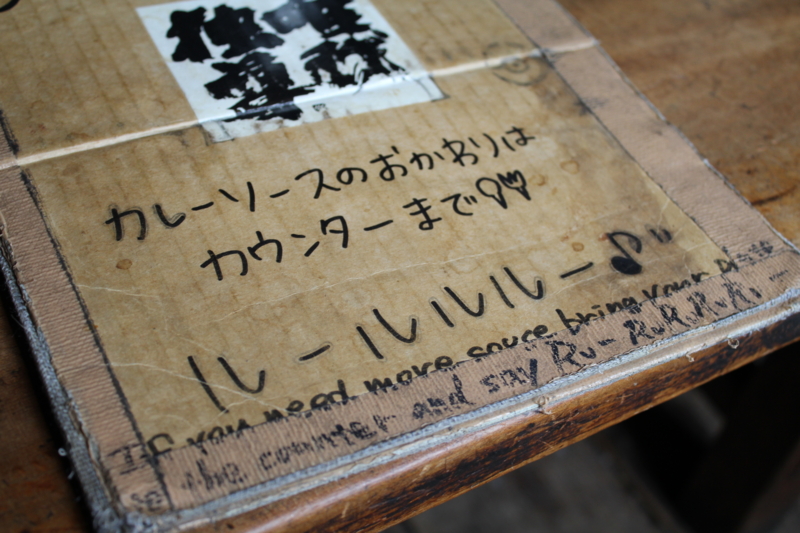 カレーソースのおかわりは
カウンターまで
ルールルルー♪"
If you need more sauce bring your dish
to the counter and say Ru-RuRuRuRu-